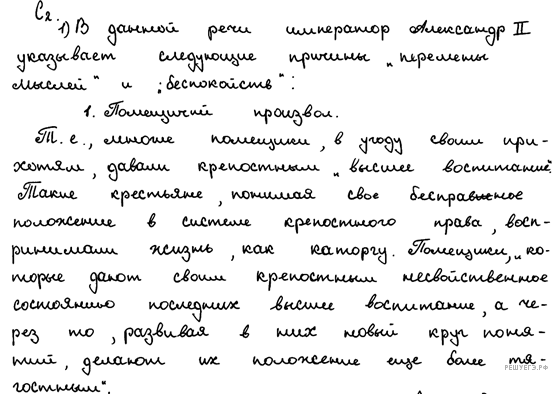 С2.
1) В данной речи император Александр II
указывает следующие причины „перемены
мыслей" и „беспокойств":
1. Помещичий произвол.
Т.е., многие помещики, в угоду своим при-
хотям, давали крепостным „высшее воспитание".
Такие крестьяне, понимая свое бесправное
положение в системе крепостного права, восп-
ринимали жизнь, как каторгу. Помещики, „ко-
торые дают своим крепостным несвойственное
состоянию последних высшее воспитание, а че-
рез то, развивая в них новый круг поня-
тий, делают их положение еще более тя-
гостным".
РЕШУЕГЭ.РФ